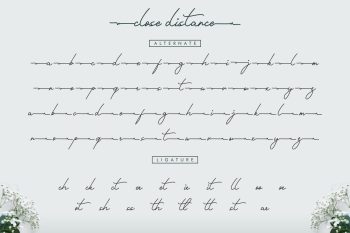 close distance
ALTERNATE
a b c d e f g h i j k l m
n o p q r s t u v w x y z
a b c d e f g h i j k l m
n o p q r s t u v w x y z
LIGATURE
ch ck ct er et ir it ll
sh th tt st ar